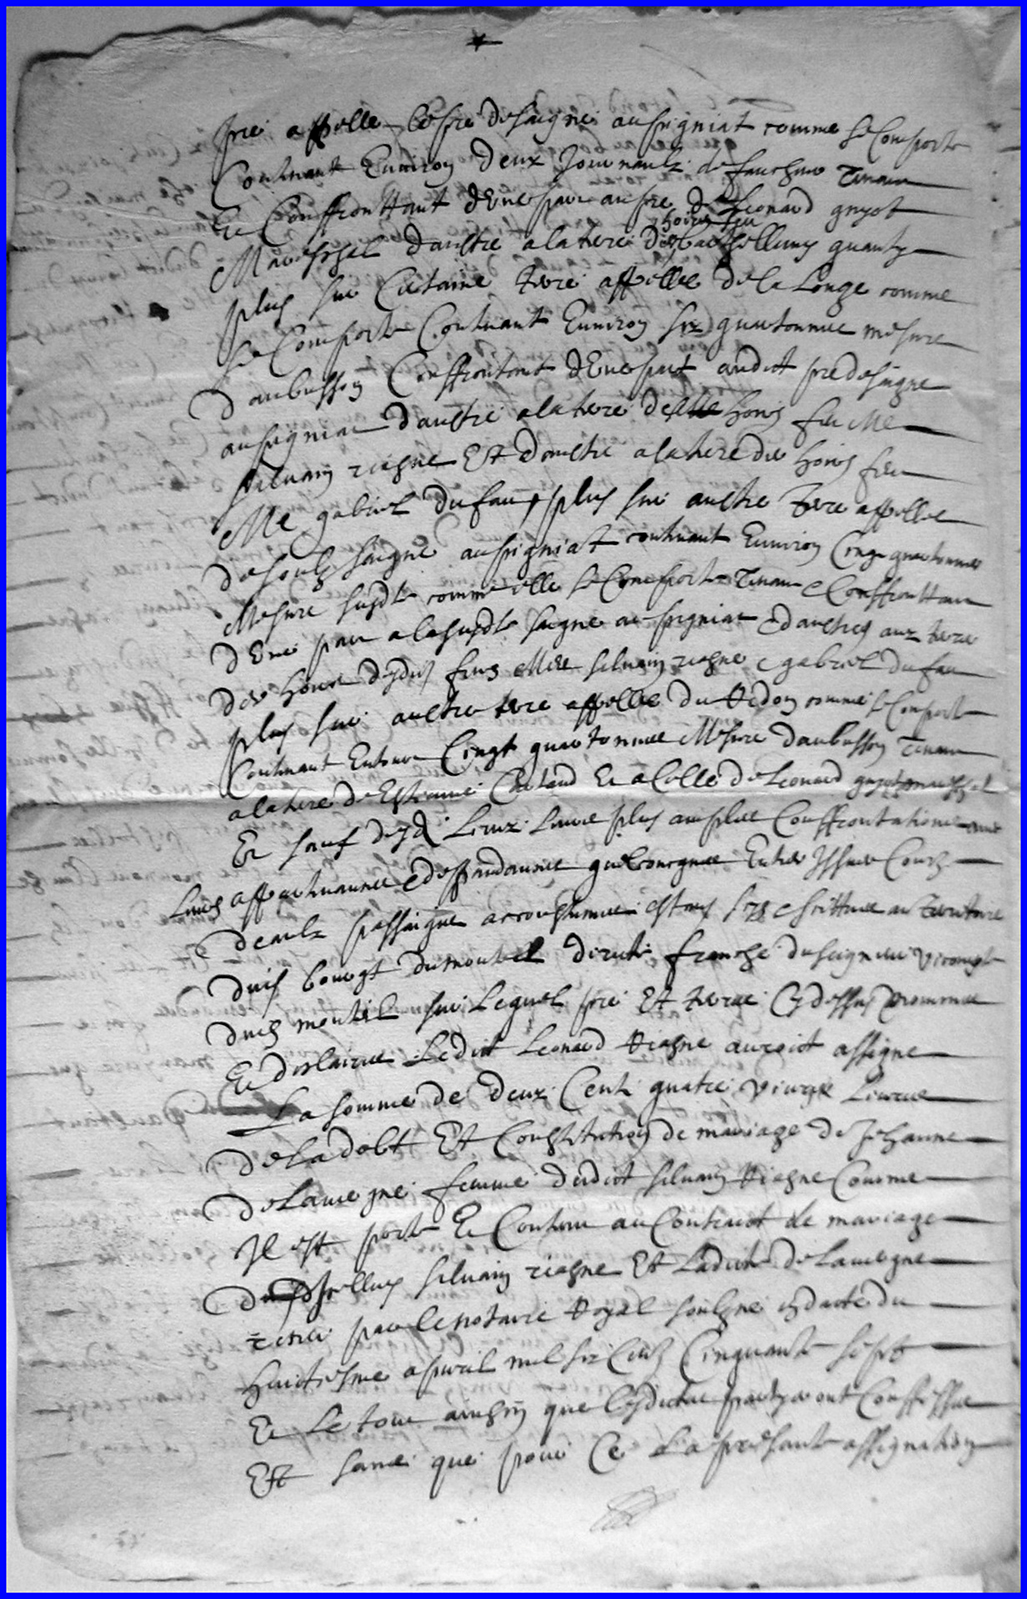 pré appelle pré de saigne auprigniat comme se comporte
Contenant Environ deux Journaulx de faucheur tenan
Et Confronttant d'une part au pre de Leonard guyot
hoirs feu
Mareschal d'aultre a la terre des Barthellemy
plus sur Certaine terre appellee de la Longe comme
se Comporte Contenant Environ six quartonnee mesure
d'aubusson Confrontant d'une part audict pre de saigne
auprigniat d'aultre a la terre des hoirs feu Me
silvain riagne Et d'aultre a la terre des hoirs feu
Me gabriel dufau, plus sur aultre terre appellee
de soubz saigne auprigniat contenant Environ Cinq quartonnee
Mesure susdte comme elle se Comporte tenan & Confronttan
d'une part a la susdte saigne auprigniat & d'aultres aux terre
des hoirs desdis feus Mes silvain riagne & gabriel du fau
plus sur aultre terre appellee du comme se Comporte
Contenant Environ Cinq quartonnee Mesure d'aubusson tenan
a la terre de Estienne Et a Celle de Leonard guyot mareschal
Et sauf desd Lieux Leurs plus ample Confrontation
Leurs appartenance & deppandance quelconque Entree Issue Cours
d'eaulx passaige accoustumee scize & scittuee au territoire
dud bourgt du monteil franche du seigneur vicompte
dud monteil sur Lequel pre Et terre Cy dessus nommee
Et desclairee Ledict Leonard riagne auroict assigne
La somme de deux Centz quatre vingtz Livres
de la dobt Et Constitution de mariage de Jehanne
de Lavergne femme dudict silvain riagne Comme
Il est porte Et Contenu au Contract de mariage
silvain riagne Et Ladicte de Lavergne
receu par le notaire Royal soubzne en datte du
huictiesme apvril mil six Centz Cinquante sept
Et Le tout ainsin que Lesdictes partyes ont Confesse
Est sans que pour Ce La presante assignation